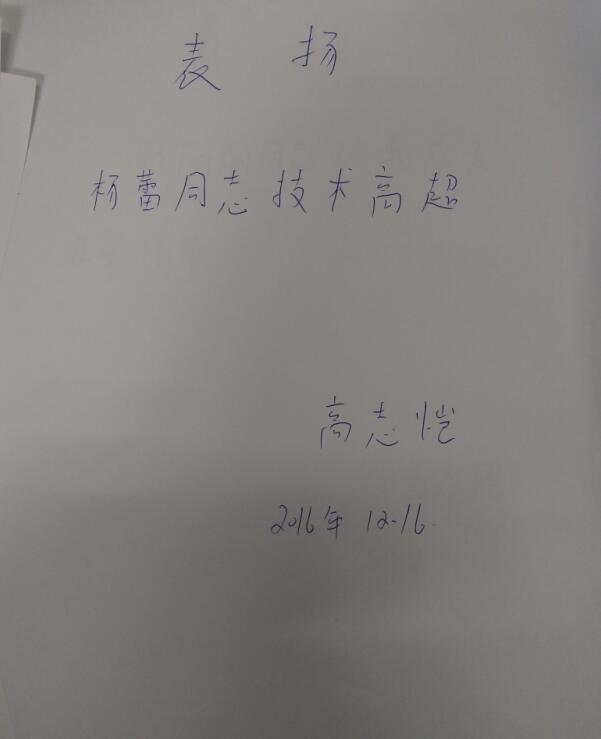 表扬
杨蕾同志技术高超
高志恺
2016年 12.16.